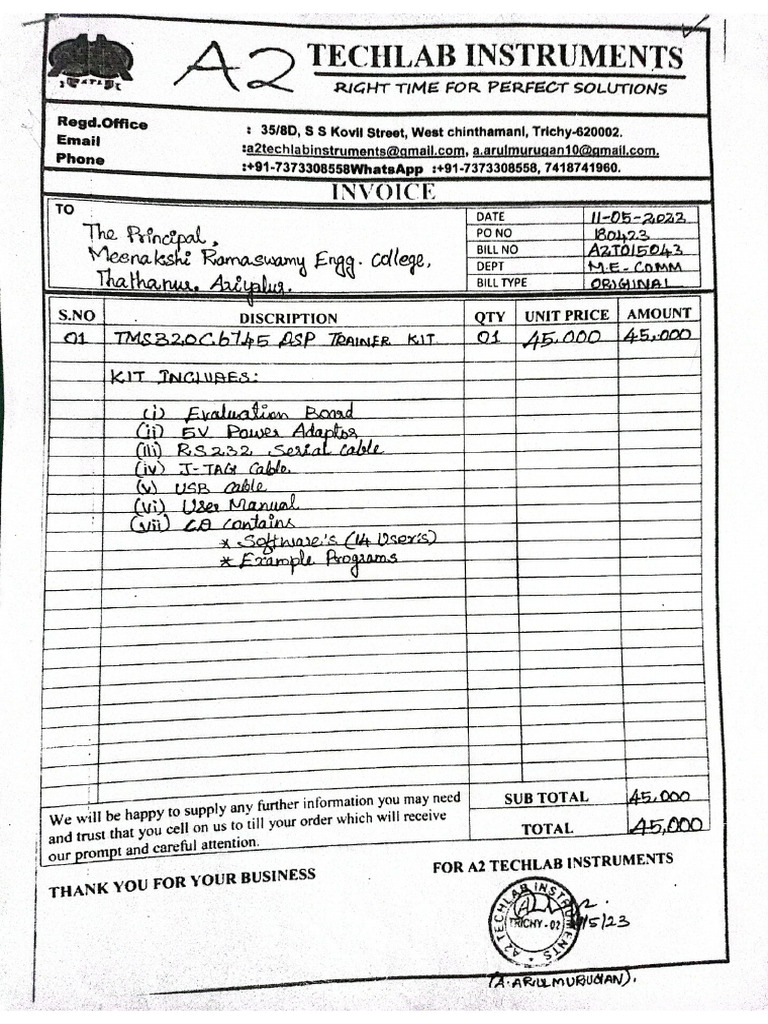 A2 TECHLAB INSTRUMENTS
RIGHT TIME FOR PERFECT SOLUTIONS
Regd.Office : 35/8D, S S Kovil Street, West chinthamani, Trichy-620002.
Email :a2techlabinstruments@gmail.com, a.arulmurugan10@gmail.com.
Phone :+91-7373308558WhatsApp :+91-7373308558, 7418741960.
INVOICE
TO
The Principal,
Meenakshi Ramaswamy Engg. College,
Thathanur, Ariyalur.
DATE 11-05-2022
PO NO 180423
BILL NO A2T015043
DEPT M.E-COMM
BILL TYPE ORIGINAL
S.NO DISCRIPTION QTY UNIT PRICE AMOUNT
01 TMS320C6745 DSP TRAINER KIT 01 45,000 45,000
KIT INCLUDES:
(i) Evaluation Board
(ii) 5V Power Adaptor
(iii) RS232 Serial Cable
(iv) J-TAG Cable
(v) USB Cable
(vi) User Manual
(vii) CD contains
* Software's (14 User's)
* Example Programs
We will be happy to supply any further information you may need
and trust that you cell on us to till your order which will receive
our prompt and careful attention.
SUB TOTAL 45,000
TOTAL 45,000
THANK YOU FOR YOUR BUSINESS
FOR A2 TECHLAB INSTRUMENTS
A2 TECHLAB INSTRUMENTS
TRICHY - 02
/5/23
(A. ARULMURUGAN).